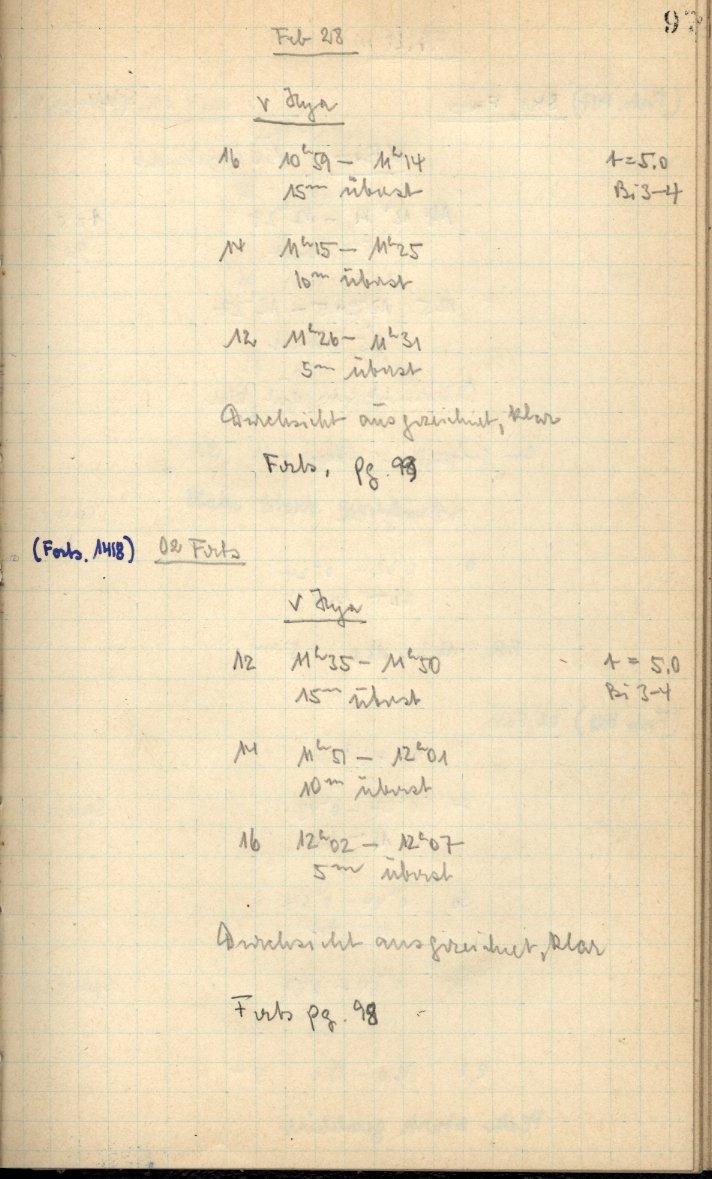 97
Feb 28
ν Hya
16 10ʰ59 – 11ʰ14 t = 5.0
15ᵐ überst Bi 3-4
14 11ʰ15 – 11ʰ25
10ᵐ überst
12 11ʰ26 – 11ʰ31
5ᵐ überst
Durchsicht ausgezeichnet, klar
Forts. pg.
(Forts. 1418) 02 Forts
ν Hya
12 11ʰ35 – 11ʰ50 t = 5.0
15ᵐ überst Bi 3-4
14 11ʰ51 – 12ʰ01
10ᵐ überst
16 12ʰ02 – 12ʰ07
5ᵐ überst
Durchsicht ausgezeichnet, klar
Forts pg. 98